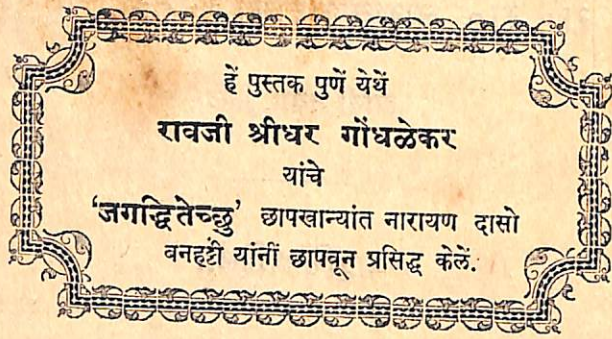 हें पुस्तक पुणें येथें
रावजी श्रीधर गोंधळेकर
यांचे
'जगद्धितेच्छु' छापखान्यांत नारायण दासो
वनहट्टी यांनीं छापवून प्रसिद्ध केलें.